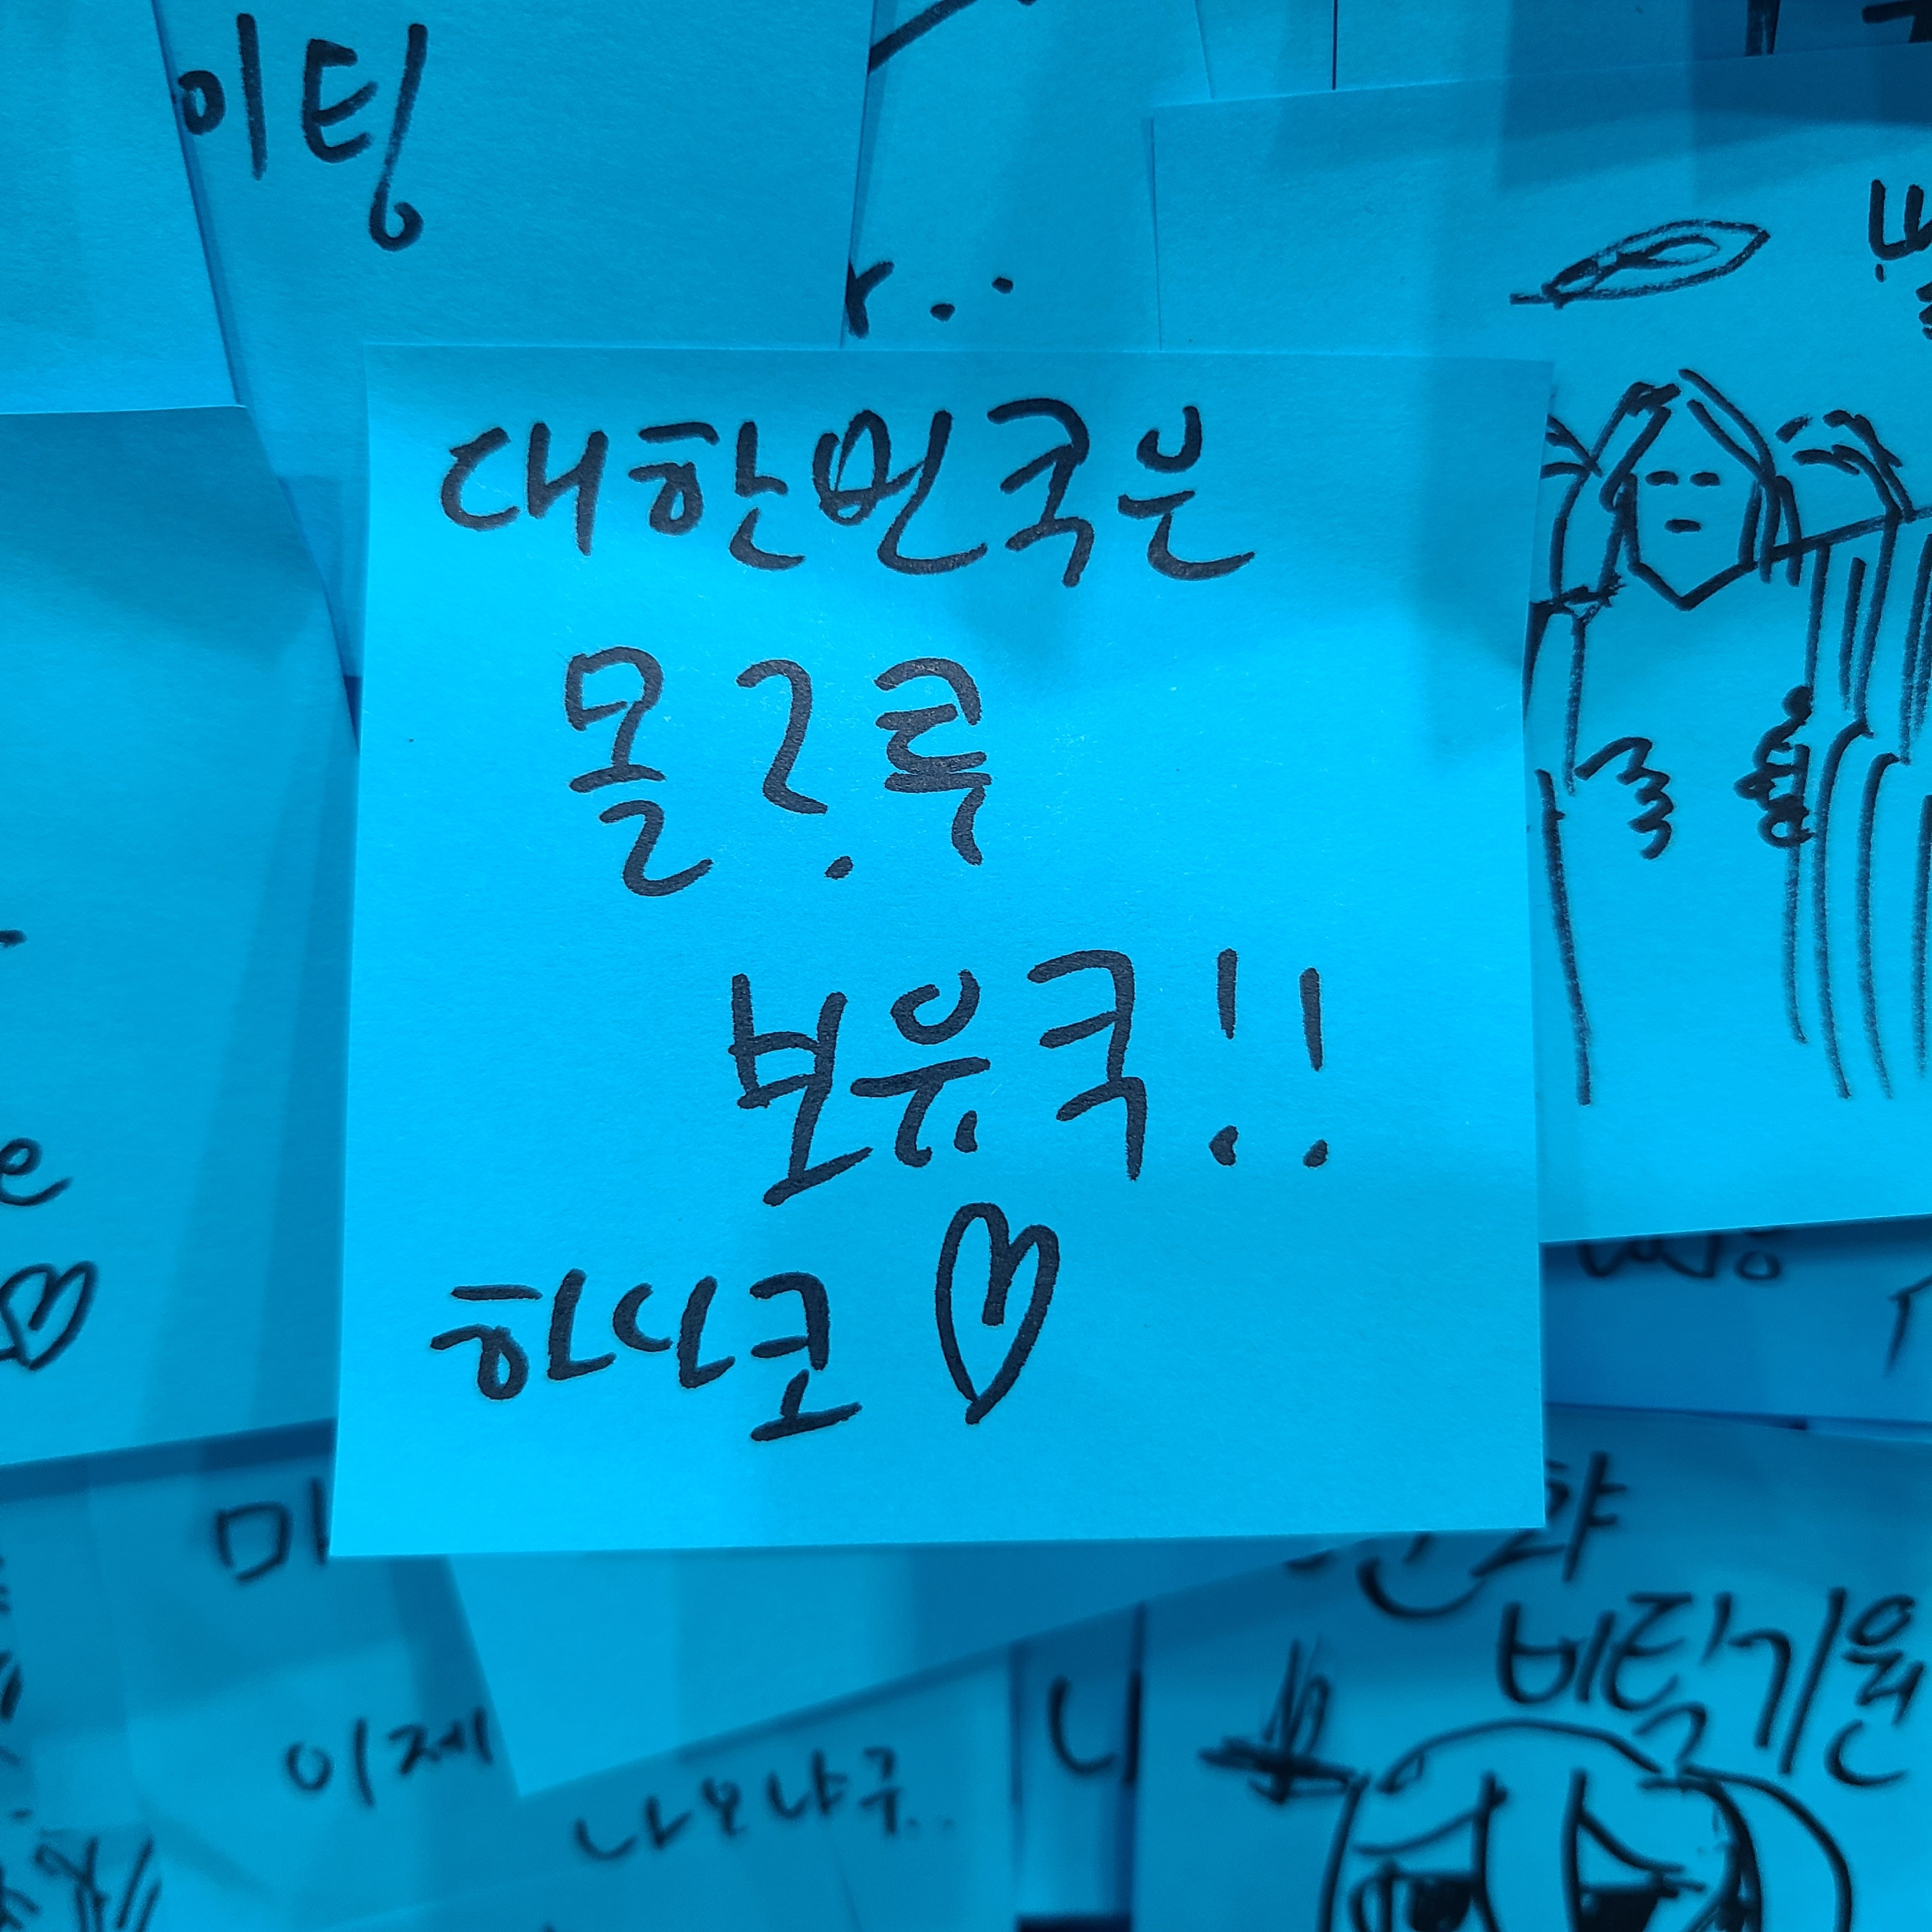 이팅
대한민국은
몰?루
보유국!!
하나코♡
이제
나오냐구..
비틱기원